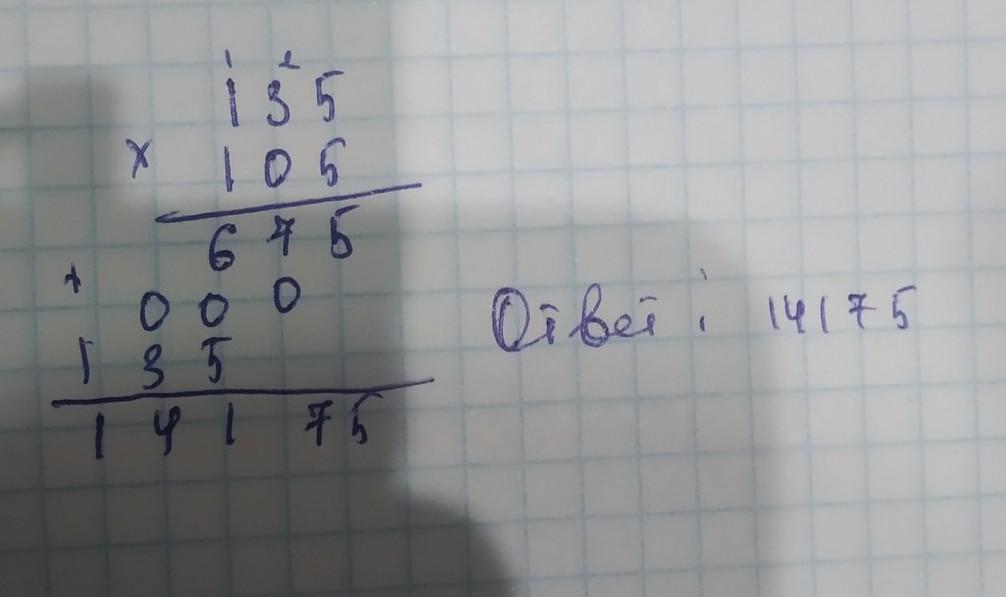 1 2
135
× 105
675
+ 000
135
14175
Ответ: 14175